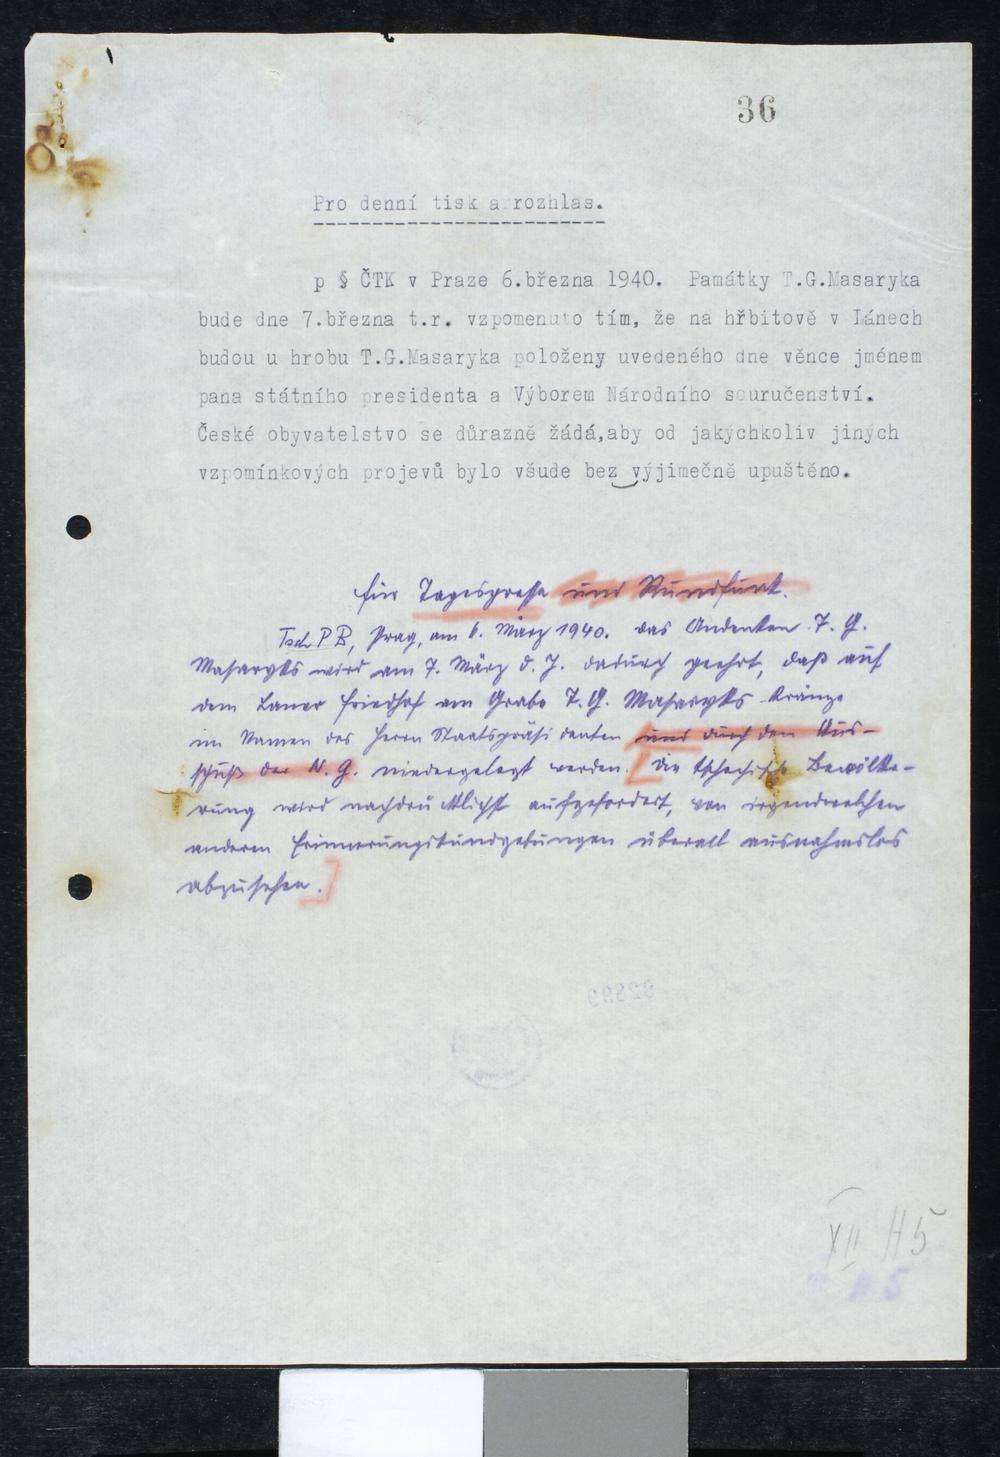 36
Pro denní tisk a rozhlas.
p § ČTK v Praze 6.března 1940. Památky T.G.Masaryka
bude dne 7.března t.r. vzpomenuto tím, že na hřbitově v Lánech
budou u hrobu T.G.Masaryka položeny uvedeného dne věnce jménem
pana státního presidenta a Výborem Národního souručenství.
České obyvatelstvo se důrazně žádá,aby od jakýchkoliv jiných
vzpomínkových projevů bylo všude bez výjimečně upuštěno.
für Tagespresse und Rundfunk.
Tsch P B, Prag, am 6. März 1940. das Andenken T. G.
Masaryks wird am 7. März d. J. dadurch geehrt, daß auf
dem Laner Friedhof am Grabe T. G. Masaryks Kränze
im Namen des Herrn Staatspräsidenten und durch den Aus-
schuß der N. G. niedergelegt werden. [Die tschechische Bevölke-
rung wird nachdrücklichst aufgefordert, von irgendwelchen
anderen Erinnerungskundgebungen überall ausnahmslos
abzusehen.]
XII H5
H 5